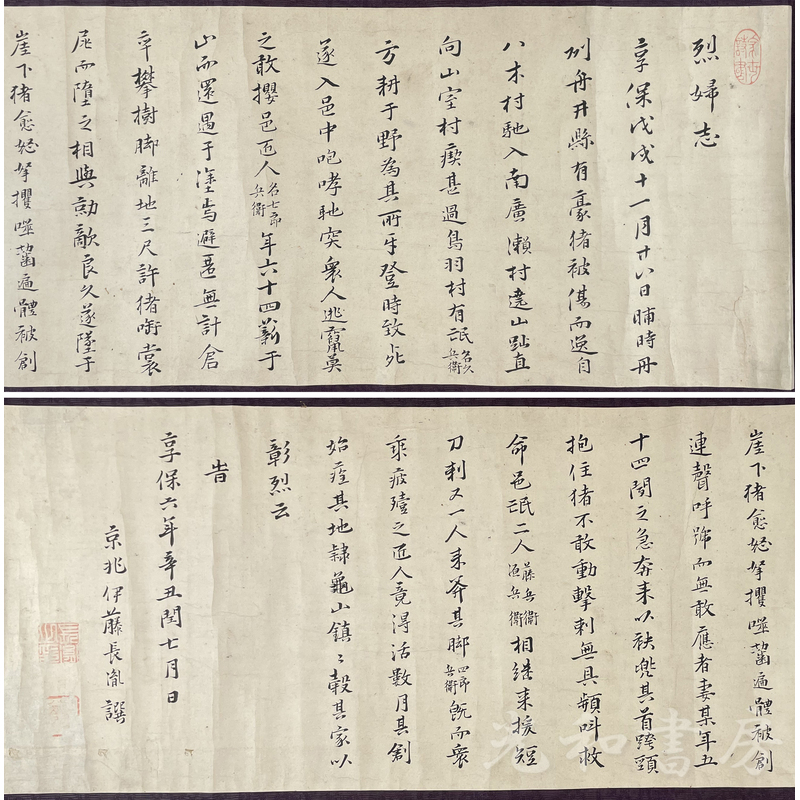 烈婦志
享保戊戌十一月廿八日晡時丹
州舟井縣有豪猪被傷而逸自
八木村馳入南廣瀨村遶山趾直
向山室村瘈甚過鳥羽村有氓名久兵衛
方耕于野為其所牙登時致死
遂入邑中咆哮馳突衆人逃竄莫
之敢攖邑匠人名七郎兵衛年六十四薪于
山而還遇于塗焉避匿無計倉
卒攀樹脚離地三尺許猪啣裳
尾而墮之相與勍敵良久遂墜于
崖下猪愈怒拏攫噬齧遍體被創
崖下猪愈怒拏攫噬齧遍體被創
連聲呼號而無敢應者妻某年五
十四聞之急奔来以袂兜其首跨頸
抱住猪不敢動擊刺無具頻叫救
命邑氓二人藤兵衛兵衛相継来援短
刀刺又一人来斧其脚四郎兵衛既而衆
乘疲殪之匠人竟得活數月其創
始痊其地隷龜山鎮〻穀其家以
彰烈云
旹
享保六年辛丑閏七月日
京兆伊藤長胤譔
和書房